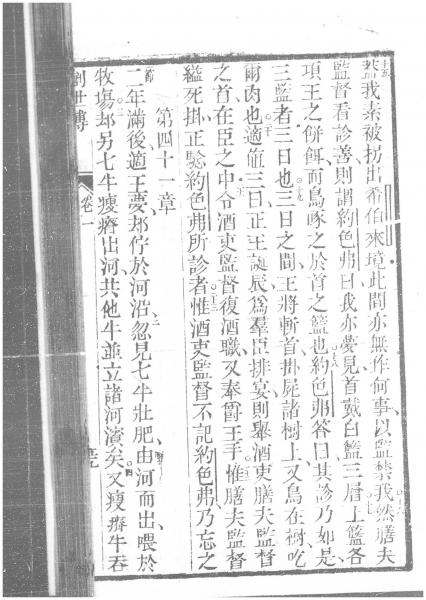 蓋我素被拐出希伯來境此間亦無作何事以監禁我然膳夫
監督看診善則謂約色弗曰我亦夢見首戴白籃三層上籃各
項王之餅餌而鳥啄之於首之籃也約色弗答曰其診乃如是
三籃者三日也三日之間王將斬首掛屍諸樹上又鳥在樹吃
爾肉也適値三日正王誕辰爲羣臣排宴則舉酒吏膳夫監督
之首在臣之中令酒吏監督復酒職又奉爵王手惟膳夫監督
縊死掛正驗約色弗所診者惟酒吏監督不記約色弗乃忘之
第四十一章
二年滿後適王夢郄佇於河沿忽見七牛壯肥由河而出喂於
牧場郄另七牛瘦瘠出河共他牛並立諸河濱矣又瘦瘠牛吞
創世傳
卷一